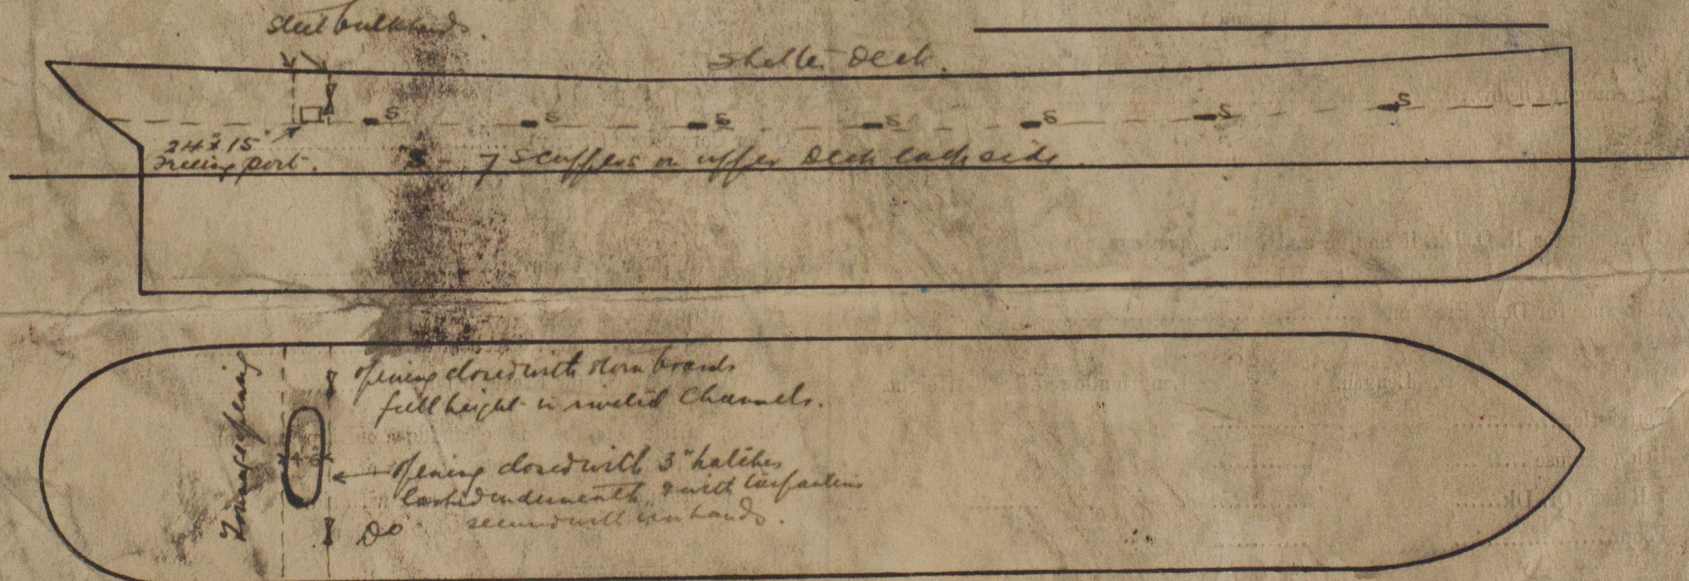 steel bulkheads.
Shelter Deck.
S S S S S S S
24" x 15"
Freeing port.
7 scuppers on upper Deck each side.
Tonnage opening
opening closed with storm boards
full height in riveted Channels.
4'0"
opening closed with 3" hatches
lashed underneath, & with tarpaulins
secured with iron bands.
Do